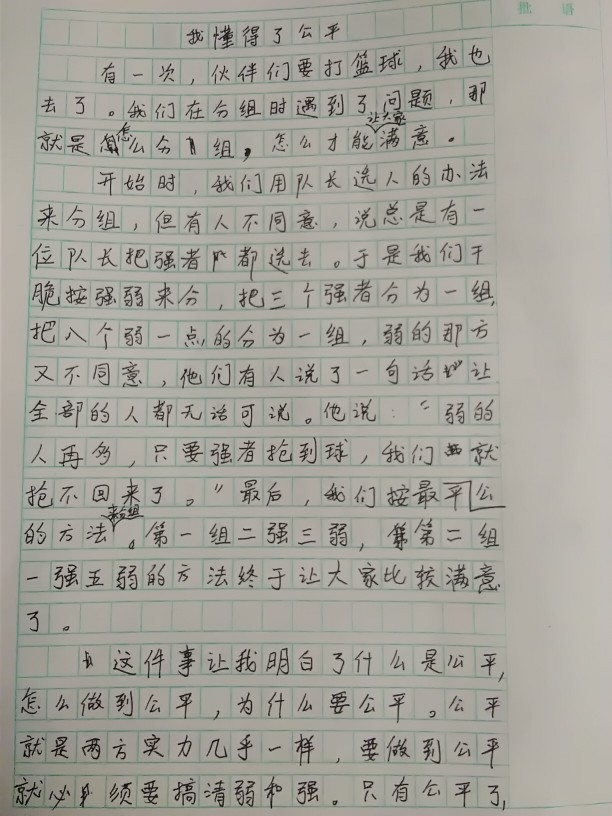 批 语
我懂得了公平
有一次，伙伴们要打篮球，我也
去了。我们在分组时遇到了问题，那
就是怎么分组，怎么才能让大家满意。
开始时，我们用队长选人的办法
来分组，但有人不同意，说总是有一
位队长把强者都选去。于是我们干
脆按强弱来分，把三个强者分为一组，
把八个弱一点的分为一组，弱的那方
又不同意，他们有人说了一句话让
全部的人都无话可说。他说：“弱的
人再多，只要强者抢到球，我们就
抢不回来了。”最后，我们按最平公
的方法来分组。第一组二强三弱，第二组
一强五弱的方法终于让大家比较满意
了。
这件事让我明白了什么是公平，
怎么做到公平，为什么要公平。公平
就是两方实力几乎一样，要做到公平
就必须要搞清弱和强。只有公平了，